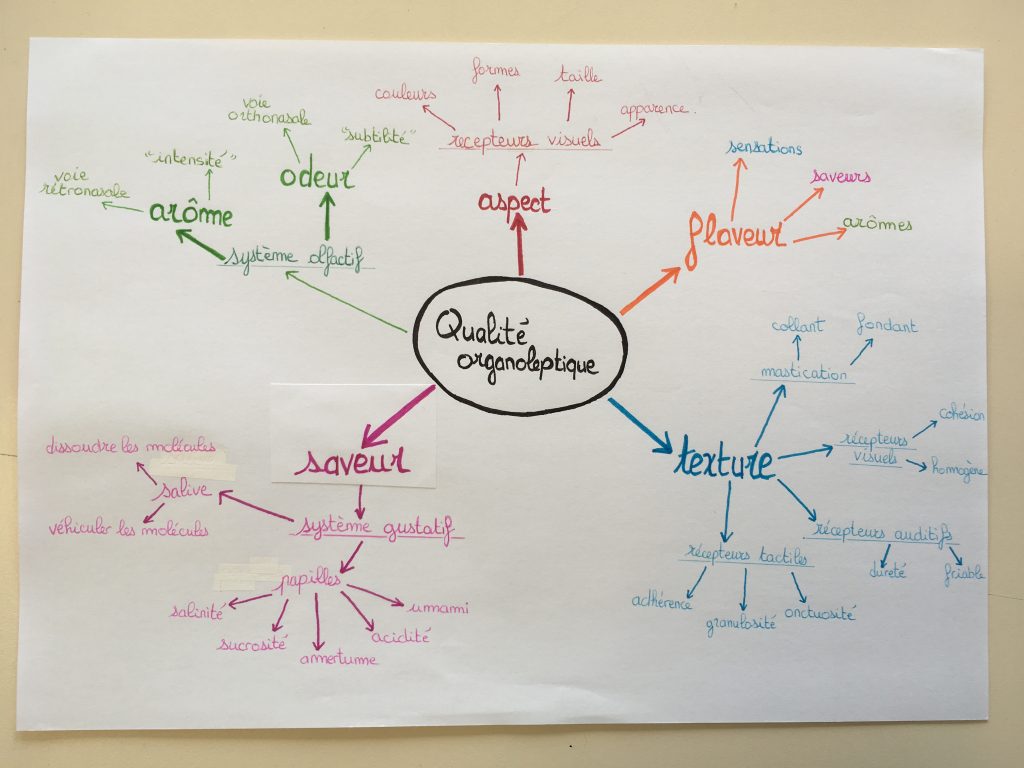 formes
taille
couleurs
apparence.
voie
orthonasale
"subtilité"
récepteurs visuels
"intensité"
odeur
voie
rétronasale
arôme
aspect
système olfactif
sensations
saveurs
arômes
flaveur
Qualité
organoleptique
collant
fondant
mastication
texture
récepteurs
visuels
cohésion
homogène
récepteurs auditifs
dureté
friable
récepteurs tactiles
adhérence
granulosité
onctuosité
saveur
dissoudre les molécules
salive
véhiculer les molécules
système gustatif
papilles
salinité
sucrosité
amertume
acidité
ummami